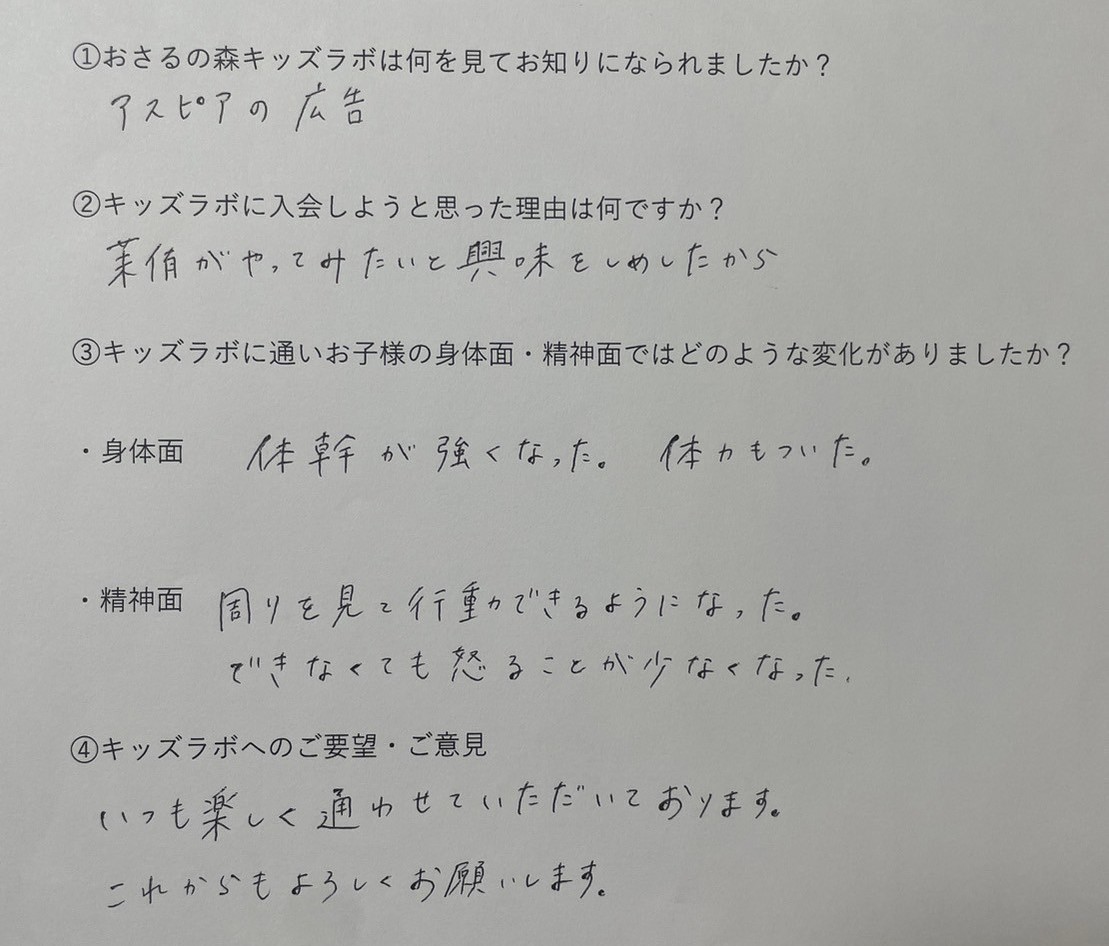 ①おさるの森キッズラボは何を見てお知りになられましたか？
アスピアの広告
②キッズラボに入会しようと思った理由は何ですか？
茉侑がやってみたいと興味をしめしたから
③キッズラボに通いお子様の身体面・精神面ではどのような変化がありましたか？
・身体面 体幹が強くなった。 体力もついた。
・精神面 周りを見て行動ができるようになった。
できなくても怒ることが少なくなった.
④キッズラボへのご要望・ご意見
いつも楽しく通わせていただいております。
これからもよろしくお願いします。